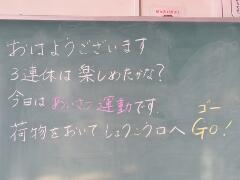 おはようございます
3連休は楽しめたかな?
今日はあいさつ運動です。
ゴー
荷物をおいてしょうこう口へGO!